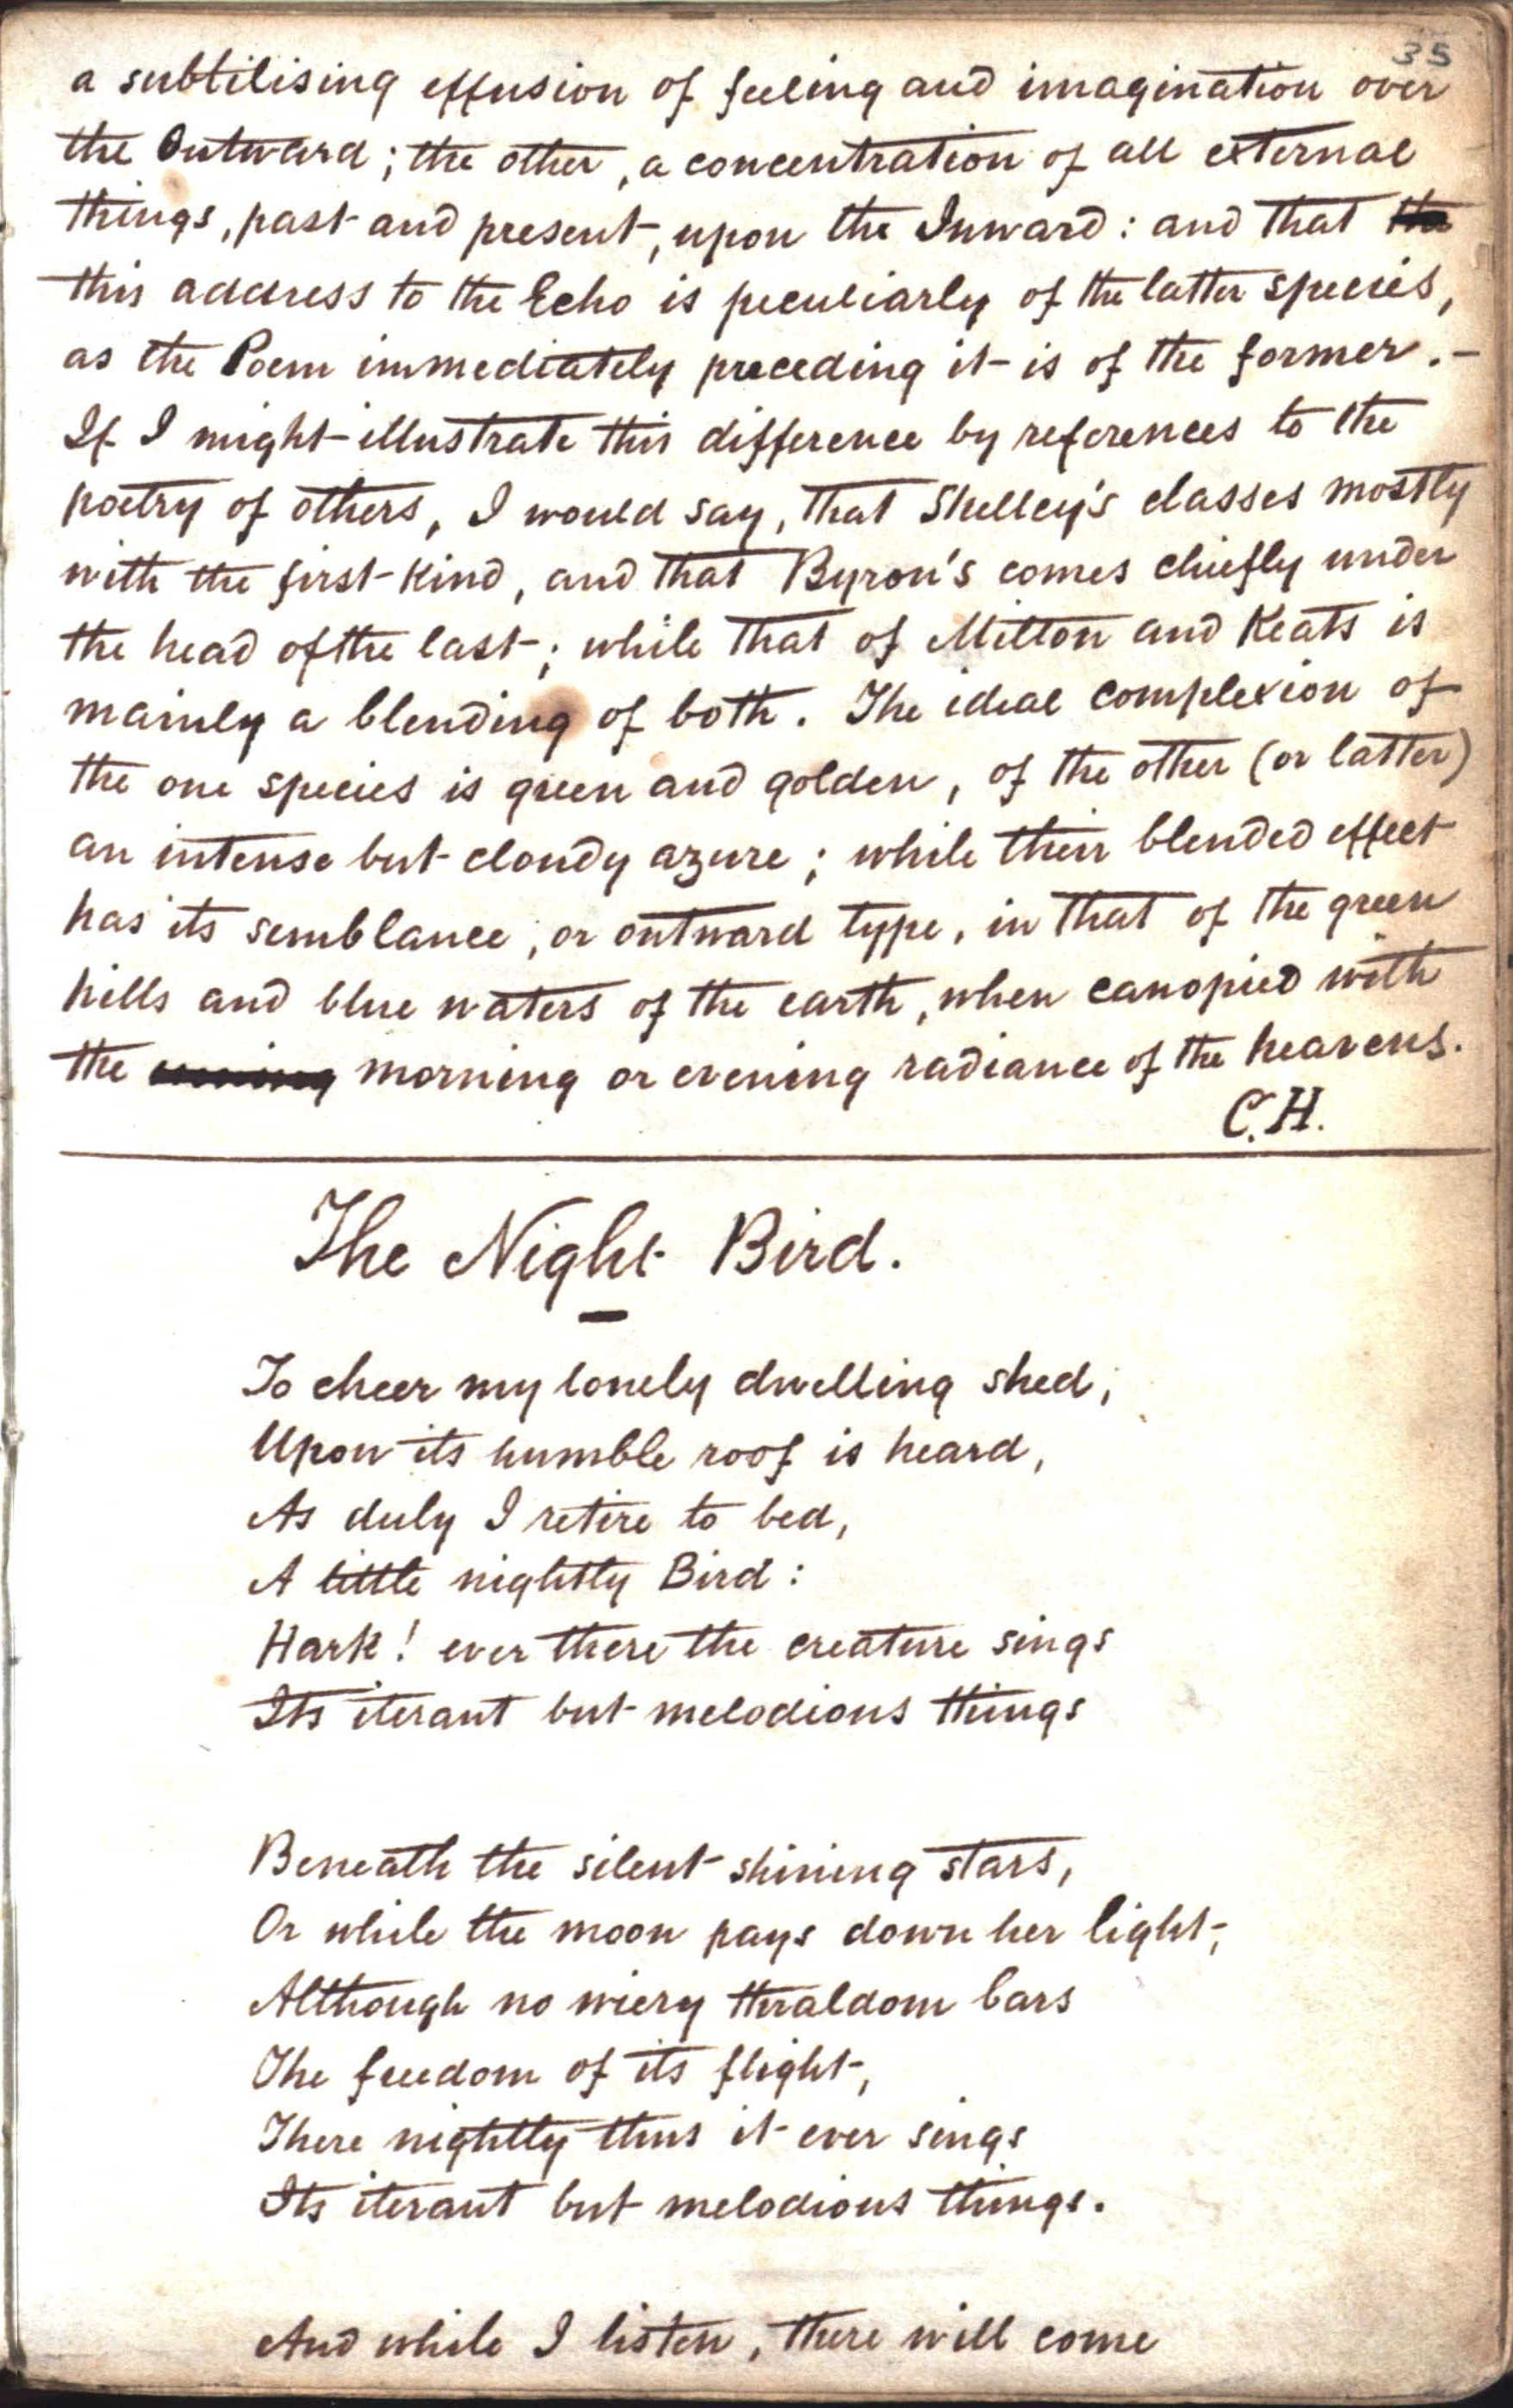 35
a subtilising effusion of feeling and imagination over
the Outward; the other, a concentration of all external
things, past and present, upon the Inward: and that the
this address to the Echo is peculiarly of the latter species,
as the Poem immediately preceding it is of the former.—
If I might illustrate this difference by references to the
poetry of others, I would say, that Shelley's classes mostly
with the first kind, and that Byron's comes chiefly under
the head of the last; while that of Milton and Keats is
mainly a blending of both. The ideal complexion of
the one species is green and golden, of the other (or latter)
an intense but cloudy azure; while their blended effect
has its semblance, or outward type, in that of the green
hills and blue waters of the earth, when canopied with
the evening morning or evening radiance of the heavens.
C.H.
The Night Bird.
To cheer my lonely dwelling shed,
Upon its humble roof is heard,
As duly I retire to bed,
A little nightly Bird:
Hark! ever there the creature sings
Its iterant but melodious things
Beneath the silent shining stars,
Or while the moon pays down her light,
Although no wiery thraldom bars
The freedom of its flight,
There nightly thus it ever sings
Its iterant but melodious things.
And while I listen, there will come